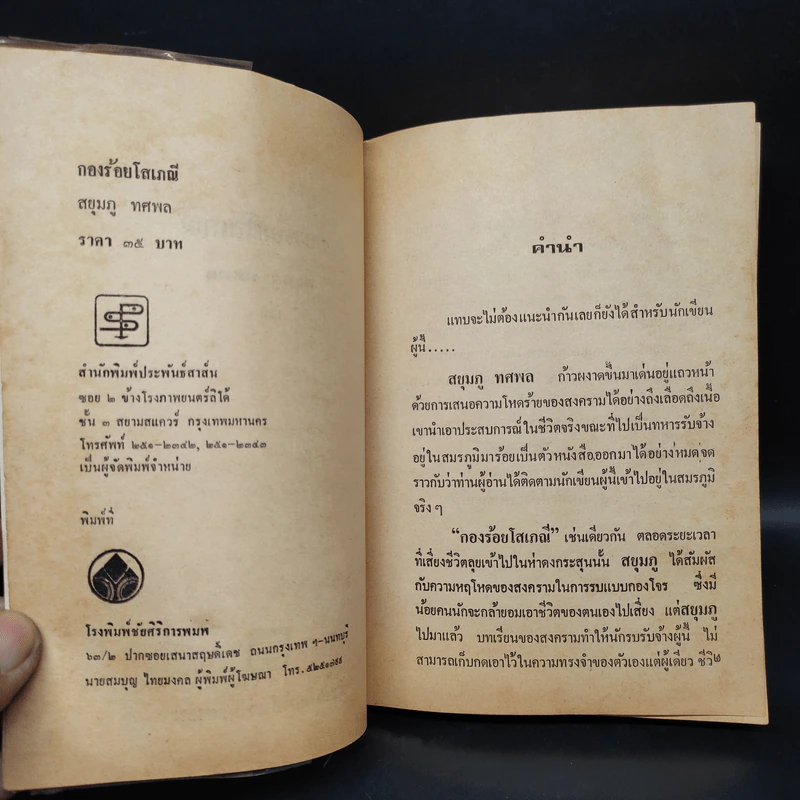 กองร้อยโสเภณี
สยุมภู ทศพล
ราคา ๓๕ บาท
สำนักพิมพ์ประพันธ์สาส์น
ซอย ๒ ข้างโรงภาพยนตร์ลิโด้
ชั้น ๓ สยามสแควร์ กรุงเทพมหานคร
โทรศัพท์ ๒๕๑-๒๓๔๒, ๒๕๑-๒๓๔๓
เป็นผู้จัดพิมพ์จำหน่าย
พิมพ์ที่
โรงพิมพ์ชัยศิริการพิมพ์
๖๓/๒ ปากซอยเสนาสฤษดิ์เดช ถนนกรุงเทพ ฯ-นนทบุรี
นายสมบุญ ไทยมงคล ผู้พิมพ์ผู้โฆษณา โทร.
คำนำ
แทบจะไม่ต้องแนะนำกันเลยก็ยังได้สำหรับนักเขียน
ผู้นี้.....
สยุมภู ทศพล ก้าวผงาดขึ้นมาเด่นอยู่แถวหน้า
ด้วยการเสนอความโหดร้ายของสงครามได้อย่างถึงเลือดถึงเนื้อ
เขานำเอาประสบการณ์ในชีวิตจริงขณะที่ไปเป็นทหารรับจ้าง
อยู่ในสมรภูมิมาร้อยเป็นตัวหนังสือออกมาได้อย่างหมดจด
ราวกับว่าท่านผู้อ่านได้ติดตามนักเขียนผู้นี้เข้าไปอยู่ในสมรภูมิ
จริง ๆ
“กองร้อยโสเภณี” เช่นเดียวกัน ตลอดระยะเวลา
ที่เสี่ยงชีวิตลุยเข้าไปในห่าดงกระสุนนั้น สยุมภู ได้สัมผัส
กับความหฤโหดของสงครามในการรบแบบกองโจร ซึ่งมี
น้อยคนนักจะกล้ายอมเอาชีวิตของตนเองไปเสี่ยง แต่สยุมภู
ไปมาแล้ว บทเรียนของสงครามทำให้นักรบรับจ้างผู้นี้ ไม่
สามารถเก็บกดเอาไว้ในความทรงจำของตัวเองแต่ผู้เดียว